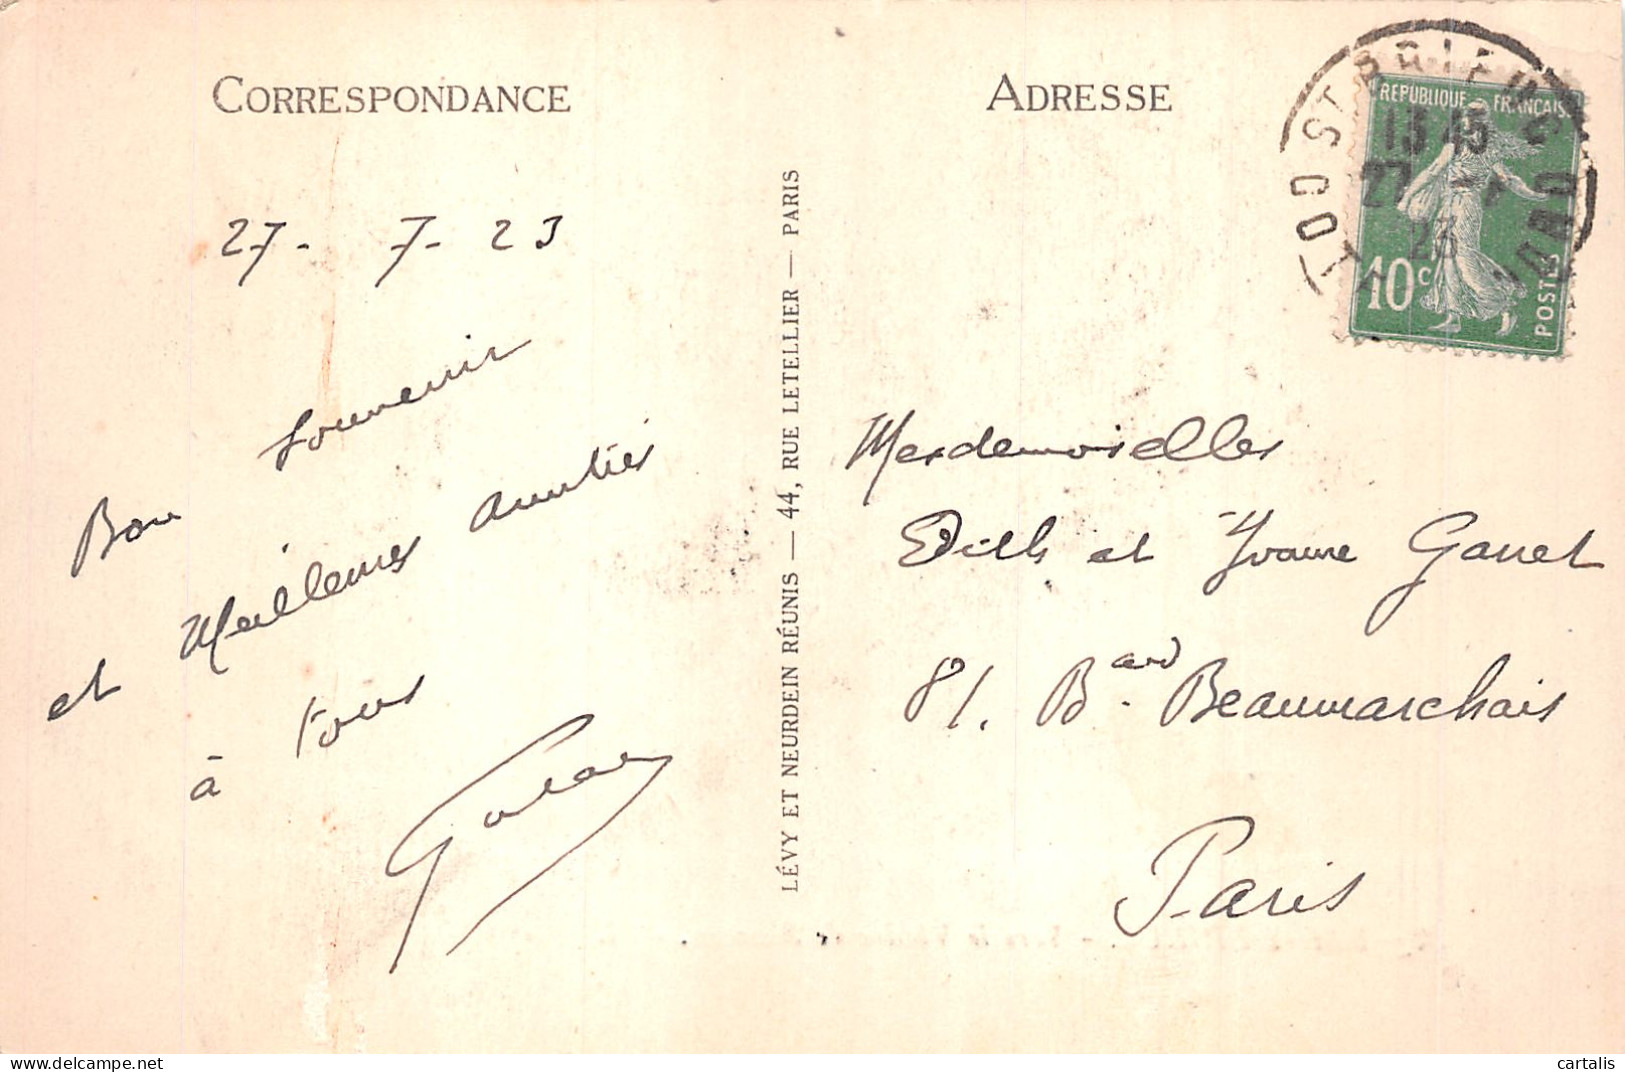 CORRESPONDANCE
27- 7- 23
Bon souvenir
et Meilleures amitiés
à tous
LÉVY ET NEURDEIN RÉUNIS — 44, RUE LETELLIER — PARIS
ADRESSE
ST BRIEUC
13 45
27 -7
23
REPUBLIQUE FRANCAISE
10c
POSTES
Mesdemoiselles
Edith et Yvonne Ganet
81. Bard Beaumarchais
Paris
www.delcampe.net
cartalis